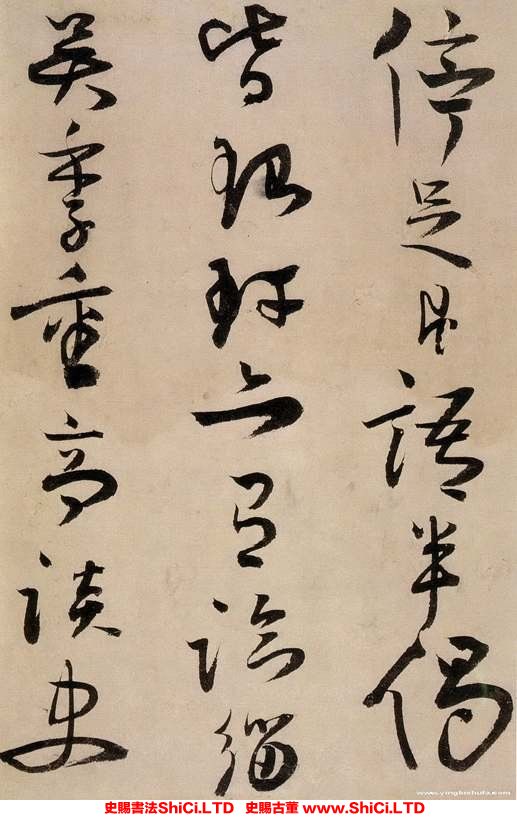 停足語半偈
皆琅玕論緇
吴季重高談史
www.yingbishufa.com
史賜書法ShiCi.LTD 史賜古董 www.ShiCi.LTD